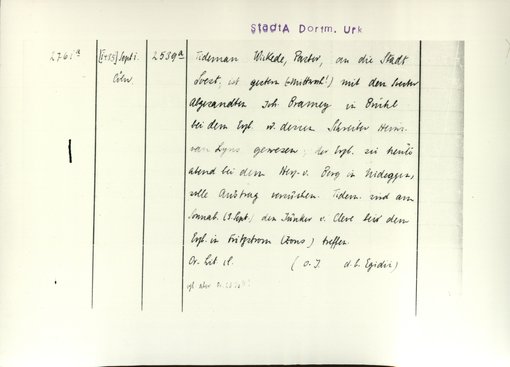 StadtA Dortm. Urk
2761a [1433] Sept 1. 2589a Tideman Wickede, Pastor, an die Stadt
Cöln. Soest, ist gestern (Mittwoch!) mit den Soester
Abgesandten Joh. Bramey in Brühl
bei dem Ezb. u. dessen Schreiber Herm.
van Lyns gewesen; der Ezb. sei heute
abend bei dem Herz. v. Berg in Nideggen,
solle Austrag versuchen. Tidem. und am
Sonnab. (3. Sept.) den Junker v. Cleve bei dem
Ezb. in Fritzstrom (Zons) treffen.
Or. Lit. cl. (o. J. d. S. Egidii)
vgl. aber